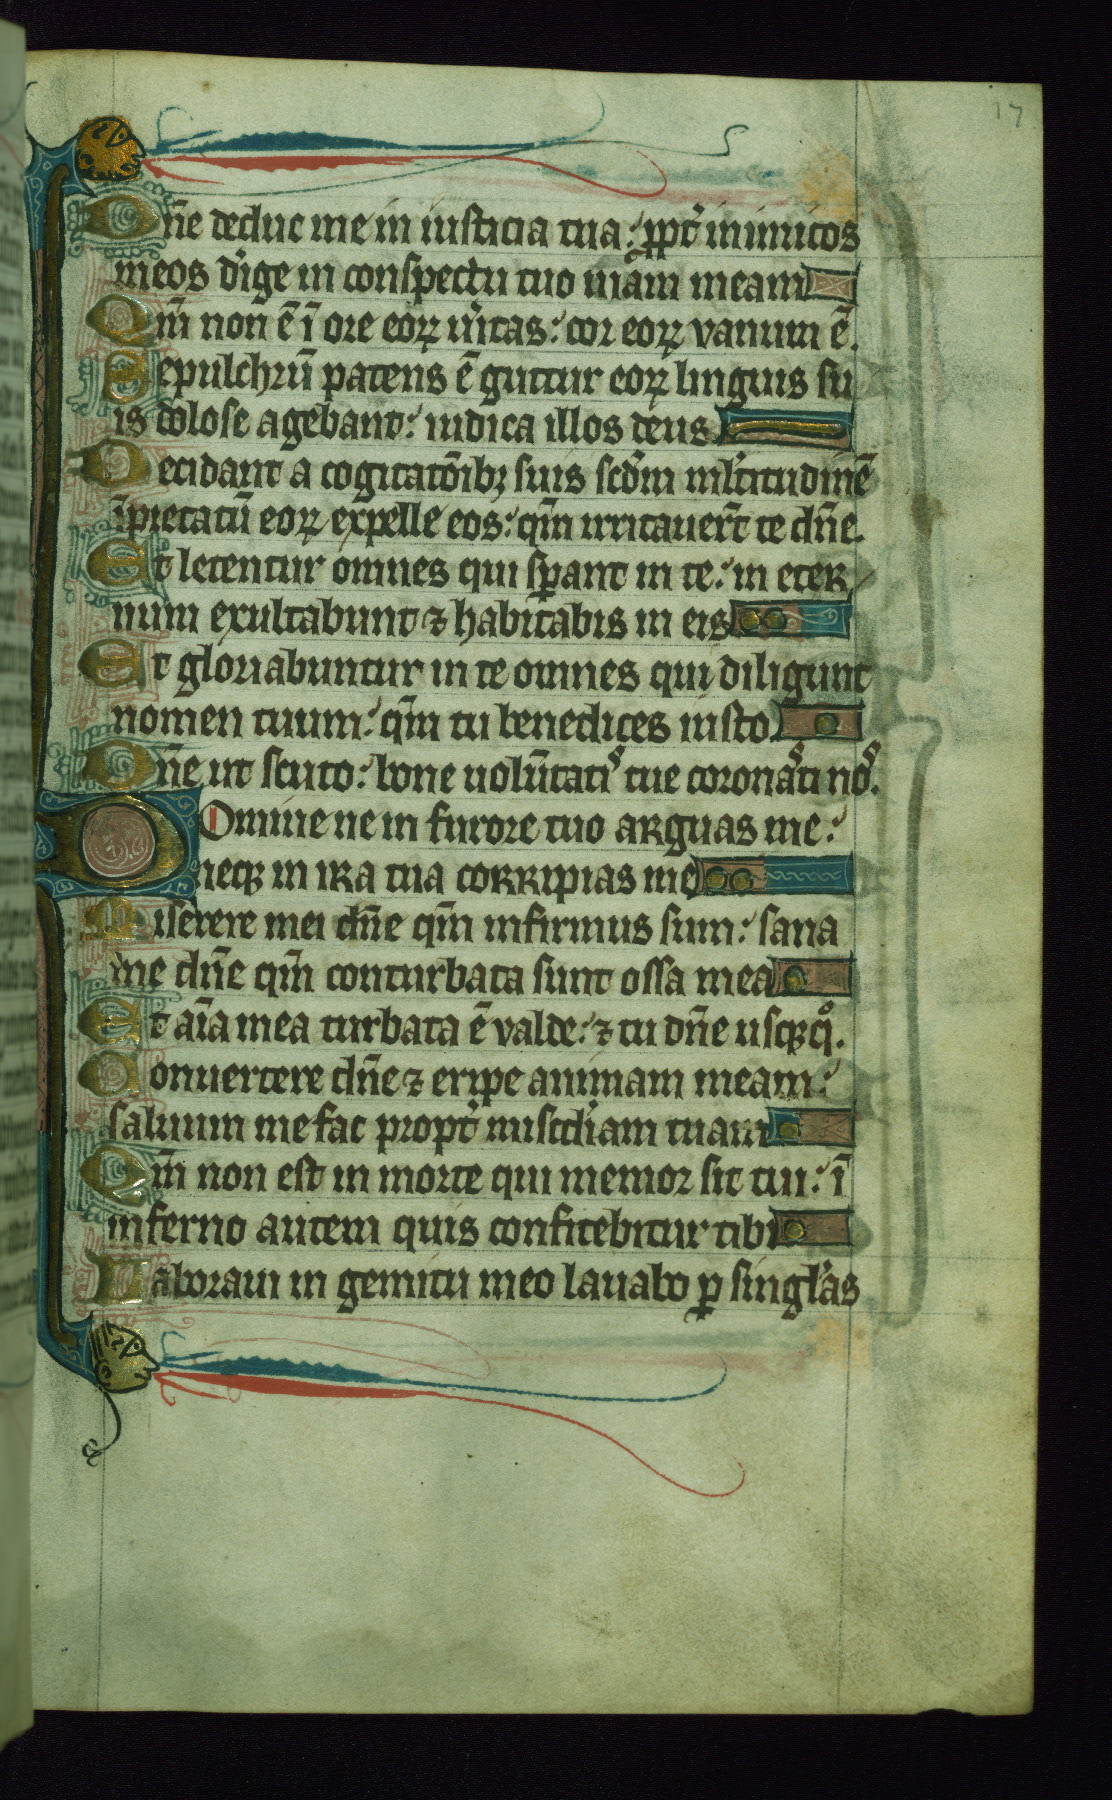 17
Dn̄e deduc me in iusticia tua: ꝓpt̕ inimicos
meos d̕ige in conspectu tuo uiam meam
Qm̄ non ē ī ore eoꝝ u̕itas: cor eoꝝ vanum ē.
Sepulchrū patens ē guttur eoꝝ linguis su
is dolose agebant: iudica illos deus
Decidant a cogitatōibꝫ suis scd̕m ml̕titudinē
īpietatū eoꝝ expelle eos: qm̄ irritauer̄t te dn̄e.
Et letentur omnes qui sꝑant in te: in eter
num exultabunt ⁊ habitabis in eis
Et gloriabuntur in te omnes qui diligunt
nomen tuum: qm̄ tu benedices iusto.
Dn̄e ut scuto: bone uolūtatis tue coronasti nos.
Domine ne in furore tuo arguas me:
neqꝫ in ira tua corripias me
Miserere mei dn̄e qm̄ infirmus sum: sana
me dn̄e qm̄ conturbata sunt ossa mea
Et aīa mea turbata ē valde: ⁊ tu dn̄e usqꝫq̊.
Conuertere dn̄e ⁊ eripe animam meam:
saluum me fac propt̕ miscd̕iam tuam
Qm̄ non est in morte qui memor sit tui: ī
inferno autem quis confitebitur tibi
Laboraui in gemitu meo lauabo ꝑ singl̕as